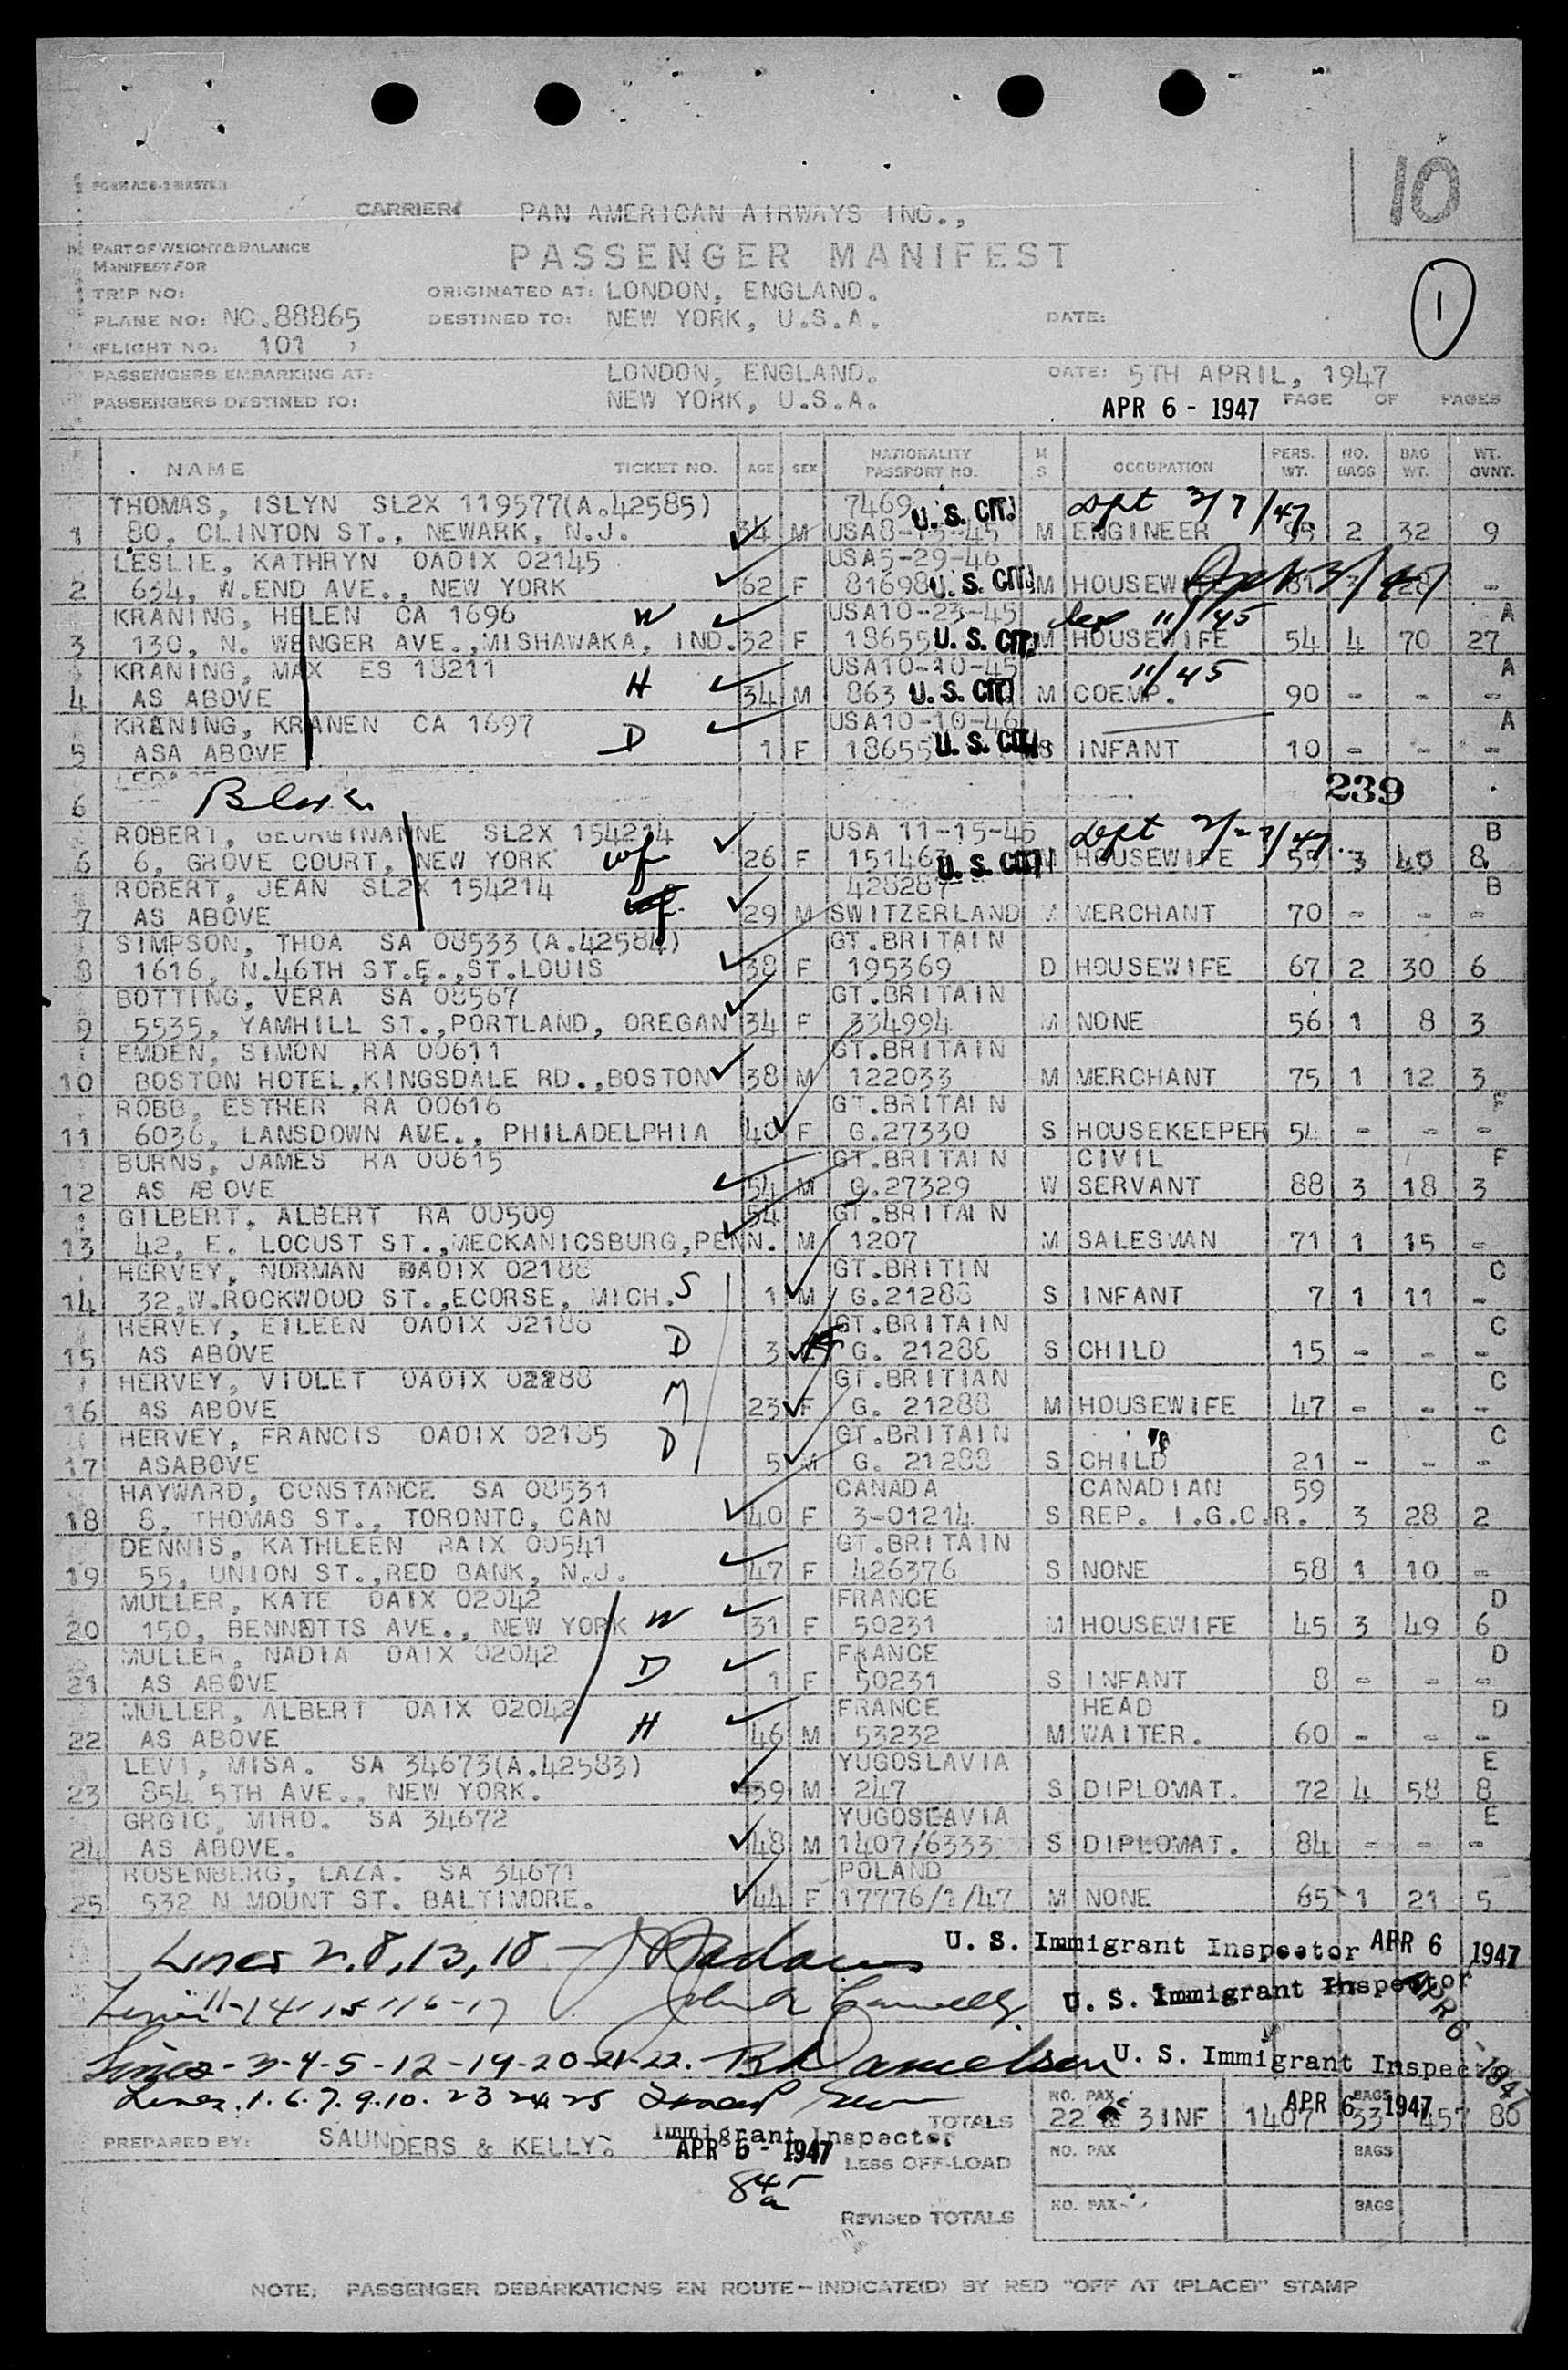 10
FORM A26-2 MASTER
CARRIER: PAN AMERICAN AIRWAYS INC.,
PART OF WEIGHT & BALANCE
MANIFEST FOR
PASSENGER MANIFEST
1
TRIP NO: ORIGINATED AT: LONDON, ENGLAND.
PLANE NO: NC.88865 DESTINED TO: NEW YORK, U.S.A. DATE:
(FLIGHT NO: 101 )
PASSENGERS EMBARKING AT: LONDON, ENGLAND. DATE: 5TH APRIL, 1947
PASSENGERS DESTINED TO: NEW YORK, U.S.A. APR 6 - 1947 PAGE OF PAGES
NAME TICKET NO. AGE SEX NATIONALITY PASSPORT NO. M S OCCUPATION PERS. WT. NO. BAGS BAG WT. WT. OVNT.
THOMAS, ISLYN SL2X 119577(A.42585) 7469 U.S. CIT. Dept 2/7/47
1 80, CLINTON ST., NEWARK, N.J. 34 M USA8-13-45 M ENGINEER 2 32 9
LESLIE, KATHRYN OAOIX 02145 USA5-29-46
2 634, W.END AVE., NEW YORK 62 F 81698 U.S. CIT. M HOUSEWIFE 61 3 28 -
KRANING, HELEN CA 1696 W USA10-23-45 11/45 A
3 130, N. WENGER AVE.,MISHAWAKA, IND. 32 F 18655 U.S. CIT. M HOUSEWIFE 54 4 70 27
KRANING, MAX ES 18211 H USA10-10-45 11/45 A
4 AS ABOVE 34 M 863 U.S. CIT. M COEMP. 90 - - -
KRANING, KRANEN CA 1697 D USA10-10-46 A
5 ASA ABOVE 1 F 18655 U.S. CIT. S INFANT 10 - - -
6 Blank 239
ROBERT, GEORGINANNE SL2X 154214 USA 11-15-45 Dept B
6 6, GROVE COURT, NEW YORK wf 26 F 151463 U.S. CIT. M HOUSEWIFE 55 3 40 8
ROBERT, JEAN SL2X 154214 428287 B
7 AS ABOVE 29 M SWITZERLAND M MERCHANT 70 - - -
SIMPSON, THOA SA 08533 (A.42584) GT.BRITAIN
8 1616, N.46TH ST.E.,ST.LOUIS 38 F 195369 D HOUSEWIFE 67 2 30 6
BOTTING, VERA SA 08567 GT.BRITAIN
9 5535, YAMHILL ST.,PORTLAND, OREGAN 34 F 334994 M NONE 56 1 8 3
EMDEN, SIMON RA 00611 GT.BRITAIN
10 BOSTON HOTEL,KINGSDALE RD.,BOSTON 38 M 122033 M MERCHANT 75 1 12 3
ROBB, ESTHER RA 00616 GT.BRITAIN F
11 6036, LANSDOWN AVE., PHILADELPHIA 40 F G.27330 S HOUSEKEEPER 54 - - -
BURNS, JAMES RA 00615 GT.BRITAIN CIVIL F
12 AS ABOVE 54 M G.27329 W SERVANT 88 3 18 3
GILBERT, ALBERT RA 00509 54 GT.BRITAIN
13 42, E. LOCUST ST.,MECKANICSBURG,PENN. M 1207 M SALESMAN 71 1 15 -
HERVEY, NORMAN OAOIX 02188 GT.BRITIN C
14 32,W.ROCKWOOD ST.,ECORSE, MICH. S 1 M G.21288 S INFANT 7 1 11 -
HERVEY, EILEEN OAOIX 02186 GT.BRITAIN C
15 AS ABOVE D 3 G. 21288 S CHILD 15 - - -
HERVEY, VIOLET OAOIX 02188 GT.BRITIAN C
16 AS ABOVE M 23 F G. 21288 M HOUSEWIFE 47 - - -
HERVEY, FRANCIS OAOIX 02185 GT.BRITAIN C
17 ASABOVE D 5 M G. 21288 S CHILD 21 - - -
HAYWARD, CONSTANCE SA 08531 CANADA CANADIAN 59
18 8, THOMAS ST., TORONTO, CAN 40 F 3-01214 S REP. I.G.C.R. 3 28 2
DENNIS, KATHLEEN RAIX 00541 GT.BRITAIN
19 55, UNION ST.,RED BANK, N.J. 47 F 426376 S NONE 58 1 10 -
MULLER, KATE OAIX 02042 FRANCE D
20 150, BENNETTS AVE., NEW YORK W 31 F 50231 M HOUSEWIFE 45 3 49 6
MULLER, NADIA OAIX 02042 FRANCE D
21 AS ABOVE D 1 F 50231 S INFANT 8 - - -
MULLER, ALBERT OAIX 02042 FRANCE HEAD D
22 AS ABOVE H 46 M 53232 M WAITER. 60 - - -
LEVI, MISA. SA 34673(A.42583) YUGOSLAVIA E
23 854 5TH AVE., NEW YORK. 39 M 247 S DIPLOMAT. 72 4 58 8
GRGIC, MIRO. SA 34672 YUGOSLAVIA E
24 AS ABOVE. 48 M 1407/6333 S DIPLOMAT. 84 - - -
ROSENBERG, LAZA. SA 34671 POLAND
25 532 N MOUNT ST. BALTIMORE. 44 F 17776/1/47 M NONE 65 1 21 5
Lines 2, 8, 13, 18 U. S. Immigrant Inspector APR 6 1947
Lines 11-14-15-16-17 U. S. Immigrant Inspector APR 6 - 1947
Lines-3-4-5-12-19-20-21-22. Danielson U. S. Immigrant Inspector
Lines. 1. 6. 7. 9. 10. 23 24 25 APR 6 1947
TOTALS NO. PAX 22 & 3INF 1407 BAGS 33 457 80
PREPARED BY: SAUNDERS & KELLY. Immigrant Inspector
APR 6 - 1947
LESS OFF-LOAD NO. PAX BAGS
845a
REVISED TOTALS NO. PAX BAGS
NOTE: PASSENGER DEBARKATIONS EN ROUTE—INDICATE(D) BY RED "OFF AT (PLACE)" STAMP